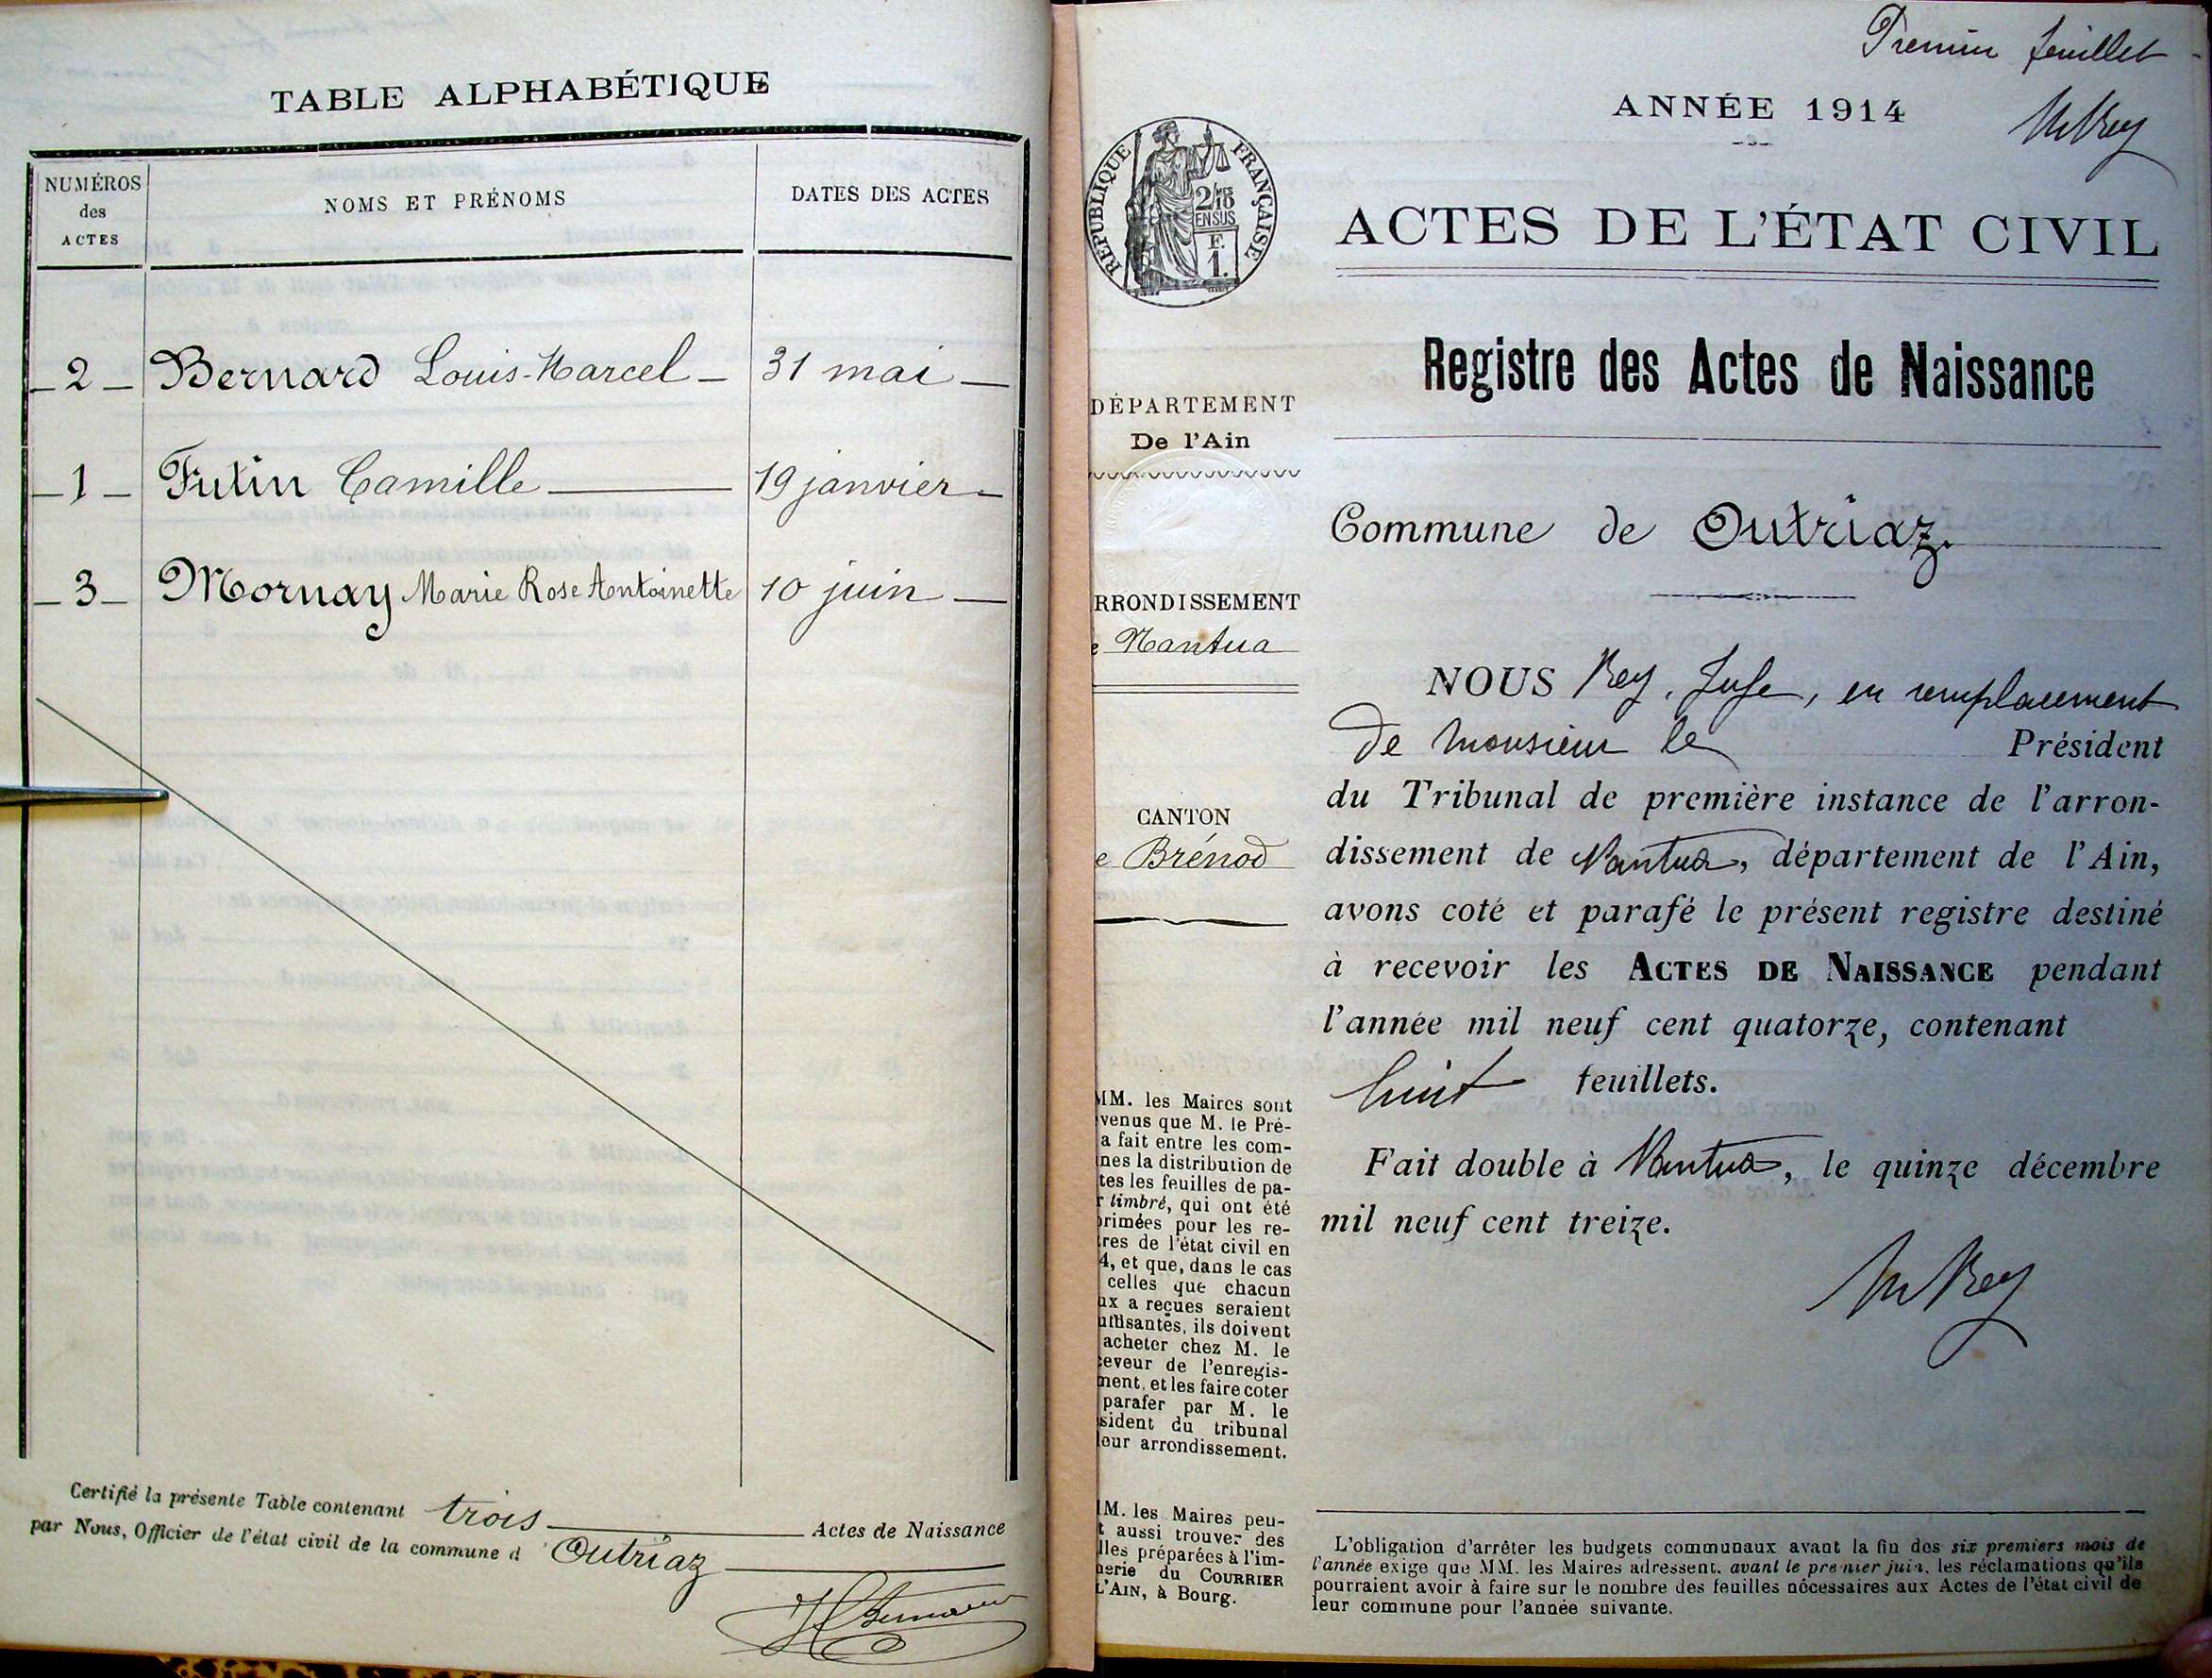 TABLE ALPHABÉTIQUE
NUMÉROS
des
ACTES
NOMS ET PRÉNOMS
DATES DES ACTES
2 Bernard Louis-Marcel 31 mai
1 Futin Camille 19 janvier
3 Mornay Marie Rose Antoinette 10 juin
Certifié la présente Table contenant trois Actes de Naissance
par Nous, Officier de l'état civil de la commune d'Outriaz
Premier feuillet
ANNÉE 1914
RÉPUBLIQUE FRANÇAISE
2/10
EN SUS
F.
1.
ACTES DE L'ÉTAT CIVIL
Registre des Actes de Naissance
DÉPARTEMENT
De l'Ain
Commune de Outriaz.
RRONDISSEMENT
e Nantua
CANTON
e Brénod
NOUS Rey, Juge, en remplacement
de monsieur le Président
du Tribunal de première instance de l'arron-
dissement de Nantua, département de l'Ain,
avons coté et parafé le présent registre destiné
à recevoir les ACTES DE NAISSANCE pendant
l'année mil neuf cent quatorze, contenant
huit feuillets.
Fait double à Nantua, le quinze décembre
mil neuf cent treize.
MM. les Maires sont
venus que M. le Pré-
a fait entre les com-
nes la distribution de
tes les feuilles de pa-
r timbré, qui ont été
primées pour les re-
res de l'état civil en
4, et que, dans le cas
celles que chacun
ux a reçues seraient
uffisantes, ils doivent
acheter chez M. le
ceveur de l'enregis-
ment, et les faire coter
parafer par M. le
sident du tribunal
leur arrondissement.
M. les Maires peu-
t aussi trouver des
lles préparées à l'im-
nerie du COURRIER
L'AIN, à Bourg.
L'obligation d'arrêter les budgets communaux avant la fin des six premiers mois de
l'année exige que MM. les Maires adressent, avant le premier juin, les réclamations qu'ils
pourraient avoir à faire sur le nombre des feuilles nécessaires aux Actes de l'état civil de
leur commune pour l'année suivante.